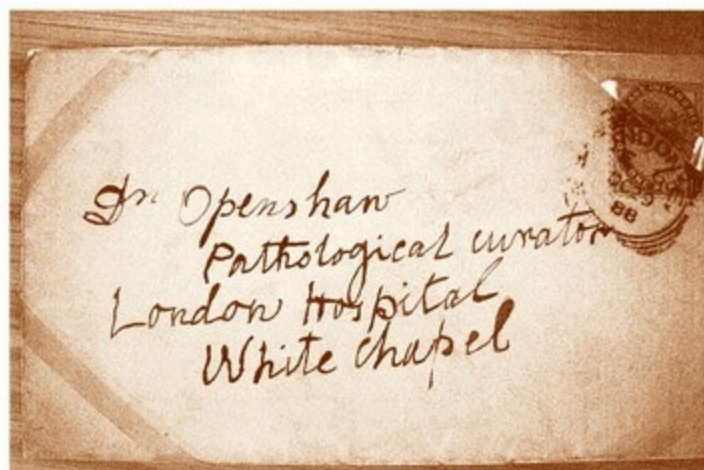 Dr. Openshaw
Pathological curator
London Hospital
White chapel
OC 29
88